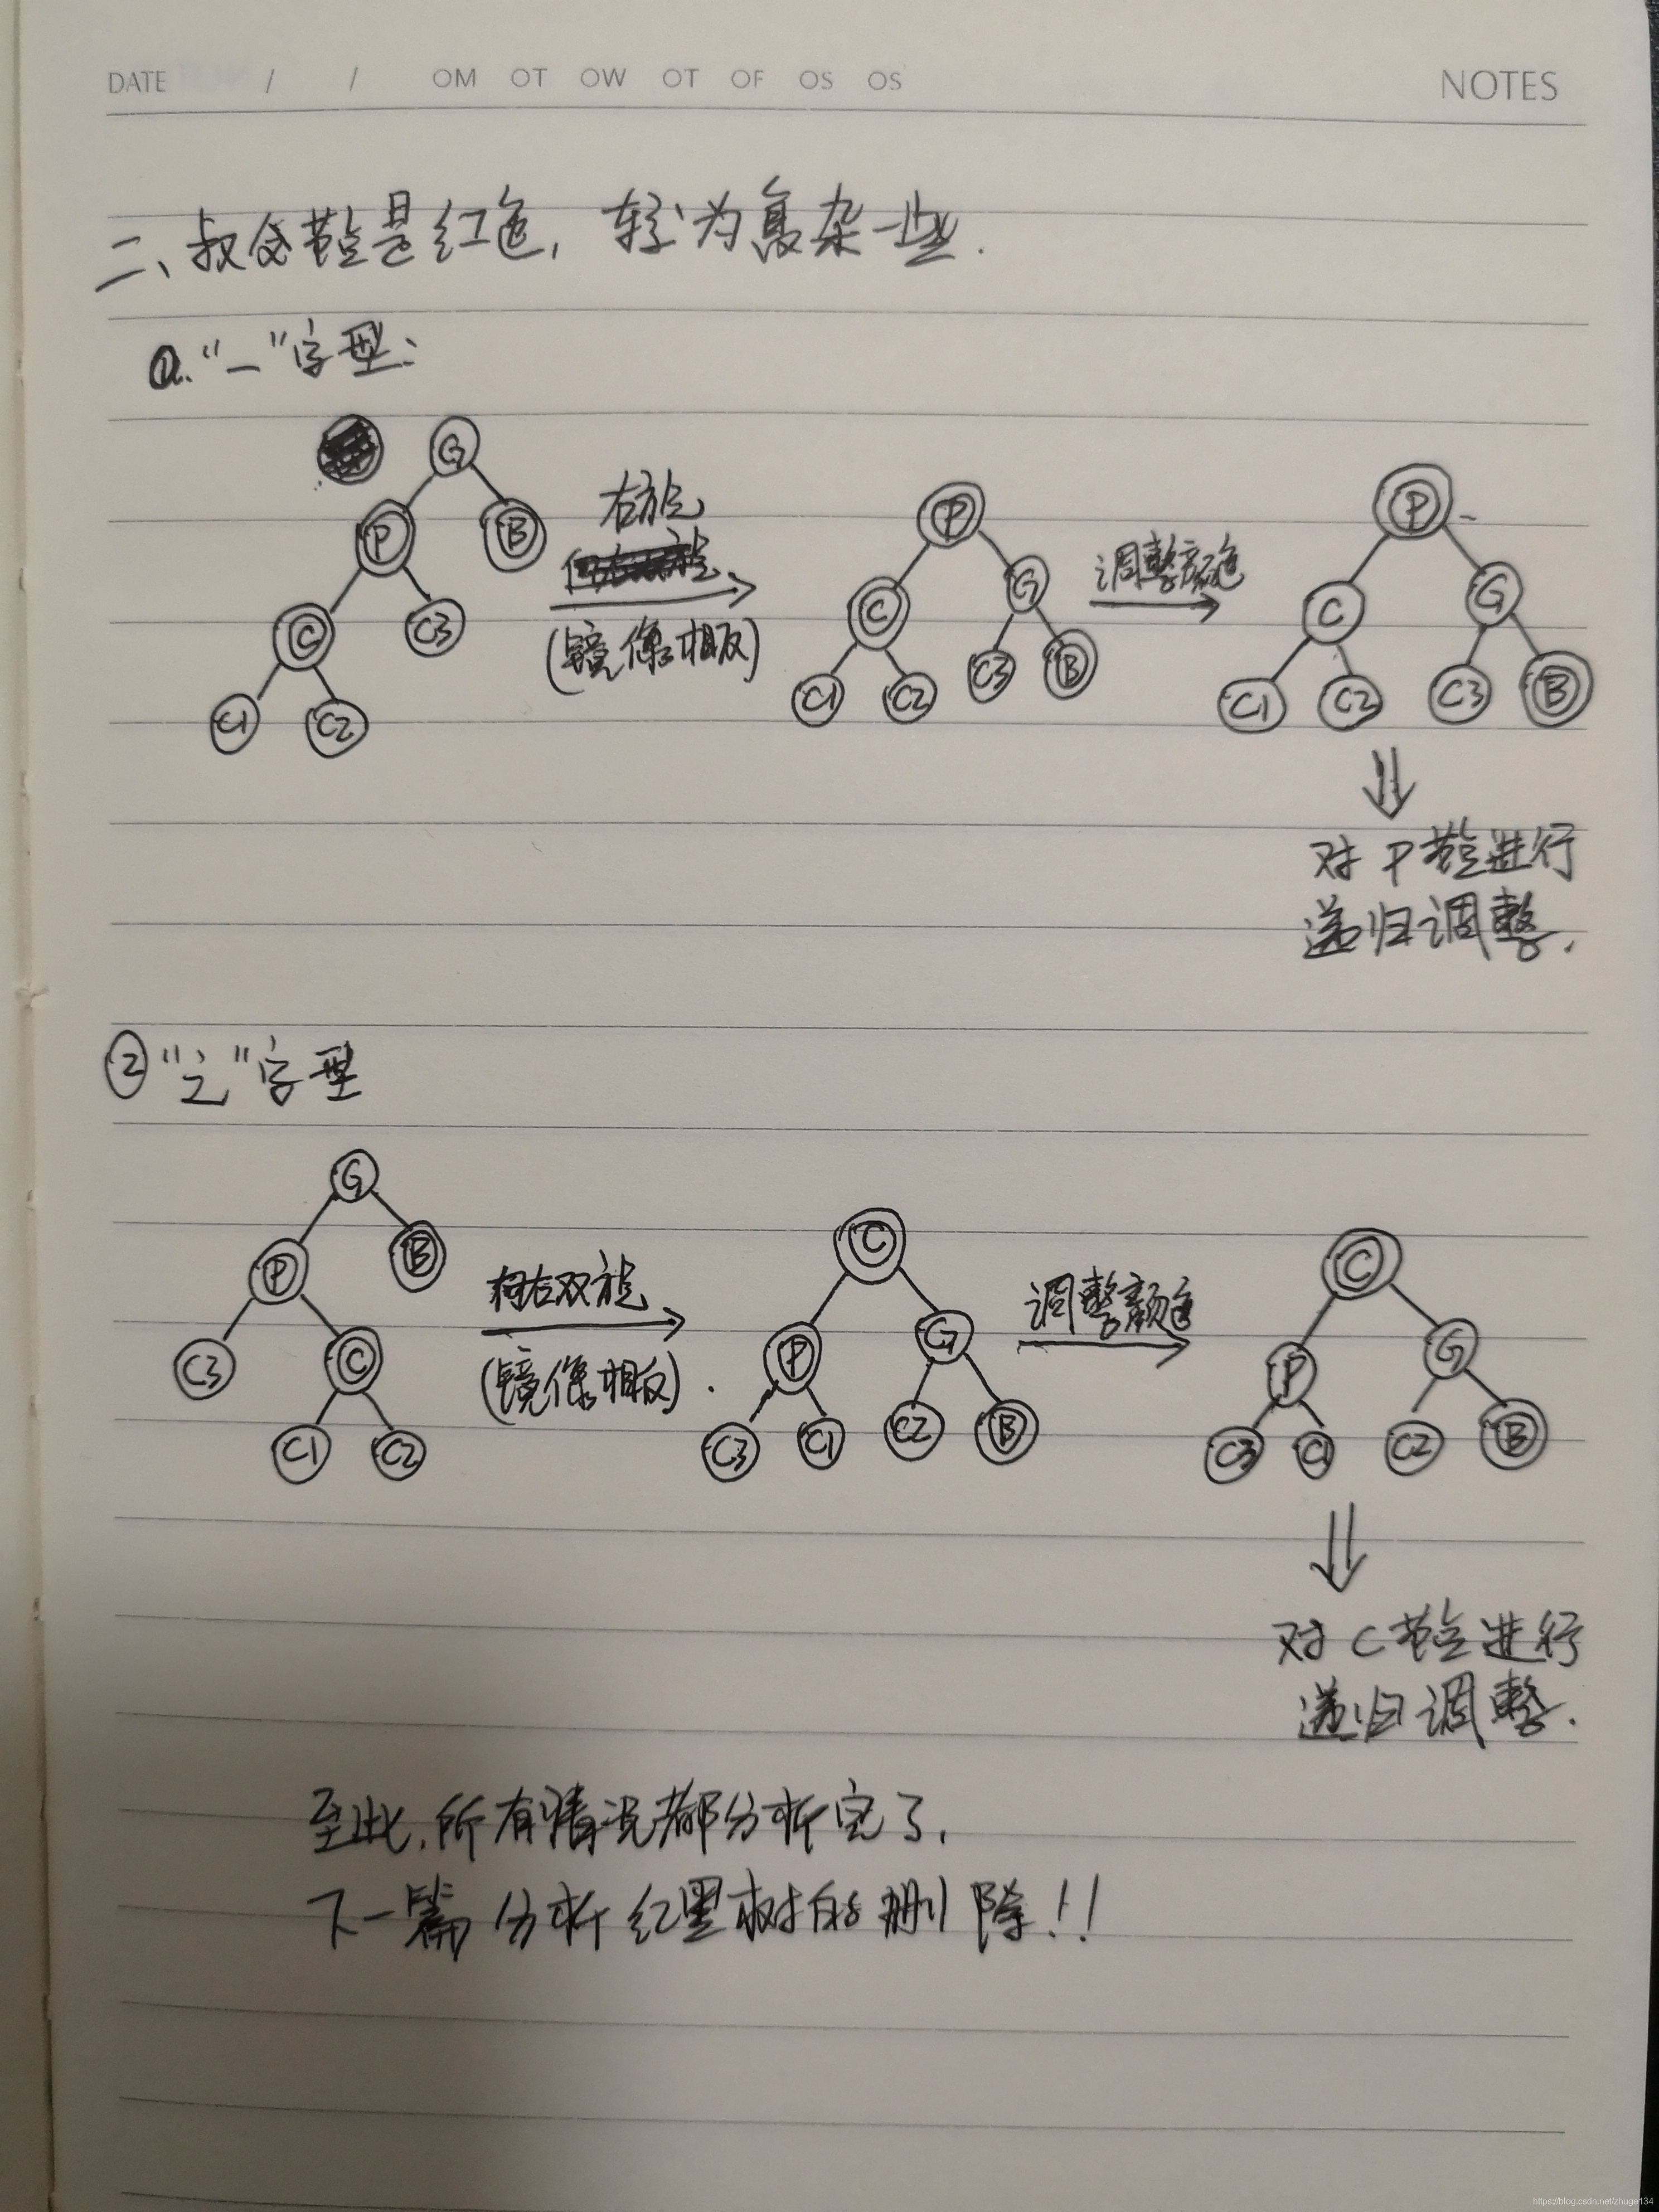 DATE / / OM OT OW OT OF OS OS NOTES
二、叔父节点是红色，较为复杂一些.
①."一"字型：
G
P B
C C3
C1 C2
右旋
(镜像相反)
P
C G
C1 C2 C3 B
调整颜色
P
C G
C1 C2 C3 B
对P节点进行
递归调整.
② "之"字型
G
P B
C3 C
C1 C2
右双旋
(镜像相反).
C
P G
C3 C1 C2 B
调整颜色
C
P G
C3 C1 C2 B
对C节点进行
递归调整.
至此,所有情况都分析完了.
下一篇分析红黑树的删除!!
https://blog.csdn.net/zhuge134